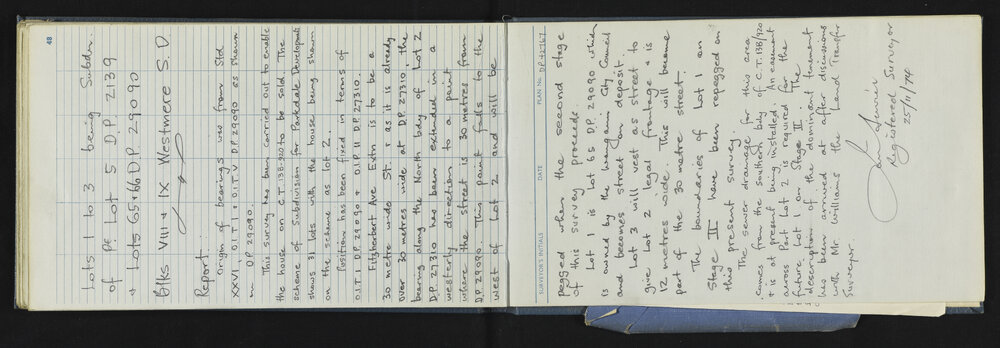 48
Lots 1 to 3 being Subdn.
of Pt. Lot 5 D.P. 2139
& Lots 65 & 66 D.P. 29090
Blks VIII & IX Westmere S.D.
Report.
Origin of bearings was from Std.
XXVI O.I.T I & O.I.T V D.P. 29090 as shown
on D.P. 29090
This survey has been carried out to enable
the house on C.T. 138/920 to be sold The
scheme of Subdivision for Parkdale Developmts
shows 31 lots with the house being shown
on the scheme as lot 2.
Position has been fixed in terms of
O.I.T I D.P. 29090 & O.I.P II D.P. 27310.
Fitzherbert Ave Extn is to be a
30 metre wide St. & as it is already
over 30 metres wide at D.P. 27310, the
bearing along the North bdy of Lot 2
D.P. 27310 has been extended in a
westerly direction to a point
where the street is 30 metres from
D.P. 29090. This point falls to the
west of Lot 2 and will be
SURVEYOR'S INITIALS DATE PLAN NO. D.P. 42767
pegged when the second stage
of this survey proceeds.
Lot 1 is Lot 65 D.P. 29090 which
is owned by the Wanganui City Council
and becomes street on deposit.
Lot 3 will vest as street to
give Lot 2 legal frontage & is
12 metres wide. This will become
part of the 30 metre street.
The boundaries of Lot 1 on
Stage II have been repegged on
this present survey.
The sewer drainage for this area
comes from the southern bdy of C.T. 138/920
& is at present being installed. An easement
across Part Lot 2 is required for the
future Lot on Stage II. The
description of the dominant tenement
has been arrived at after discussions
with Mr Williams the Land Transfer
Surveyor.
Registered Surveyor
25/11/74